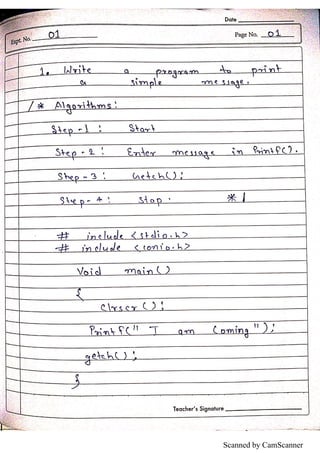 Date
Expt. No. 01 Page No. 01
1. Write a program to print
a simple message.
/* Algorithms:
Step - 1 : Start
Step - 2 : Enter message in Printf().
Step - 3 : Getch();
Step - 4 : Stop. */
# include <stdio.h>
# include <conio.h>
Void main()
{
Clrscr();
Printf(" I am Coming ");
getch();
}
Teacher's Signature
Scanned by CamScanner